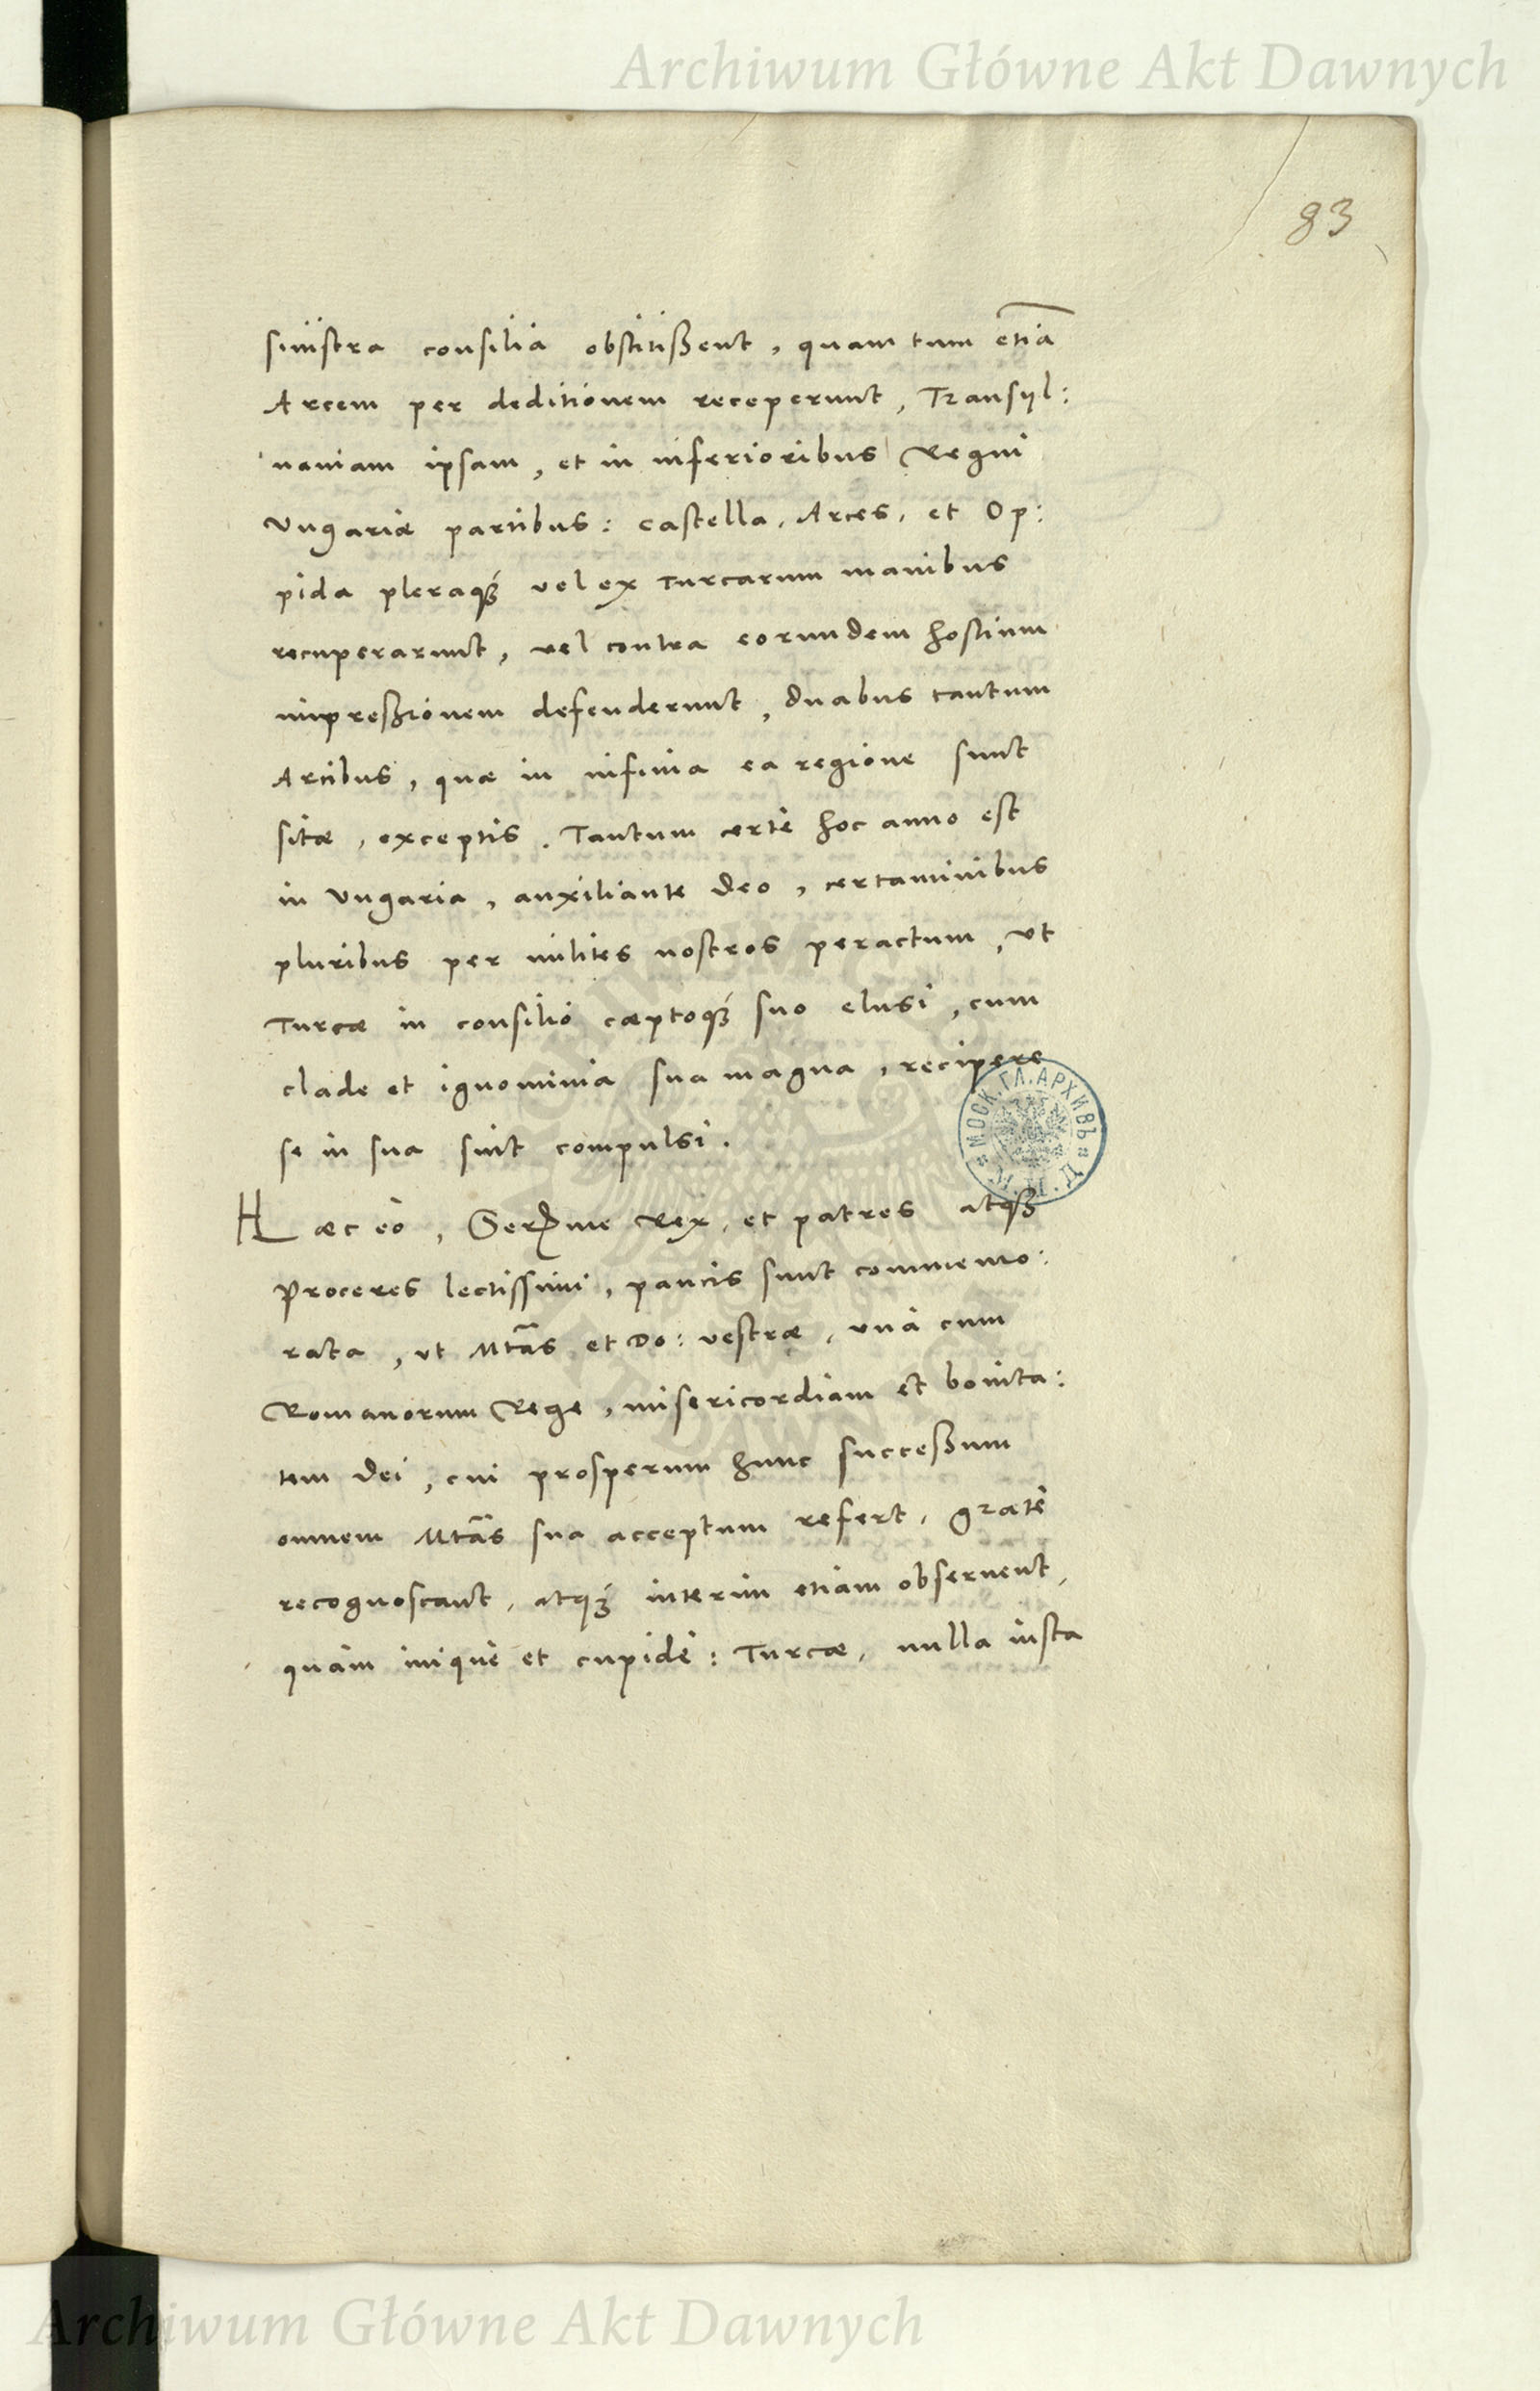 Archiwum Główne Akt Dawnych
83
sinistra consilia obstitißent, quam tum etiā
Arcem per deditionem receperunt, Transyl:
uaniam ipsam, et in inferioribus Regni
Vngariæ partibus: castella, Arces, et Op:
pida pleraqꝫ vel ex Turcarum manibus
recuperarunt, vel contra eorundem hostium
impreßionem defenderunt, duabus tantum
Arcibus, quæ in infima ea regione sunt
sitæ, exceptis. Tantum certè hoc anno est
in Vngaria, auxiliante deo, certaminibus
pluribus per milites nostros peractum, vt
Turcæ in consilio cæptoqꝫ suo elusi, cum
clade et ignominia sua magna, recipere
se in sua sint compulsi.
МОСК. ГЛ. АРХИВЪ
Hæc eò, Serme Rex, et patres atqꝫ
Proceres lectissimi, paucis sunt commemo:
rata, vt Mtās et Do: vestræ, vnà cum
Romanorum Rege, misericordiam et bonita:
tem dei, cui prosperum hunc succeßum
omnem Mtās sua acceptum refert, gratè
recognoscant, atqꝫ interim etiam obseruent,
quàm iniquè et cupidè: Turcæ, nulla iusta
Archiwum Główne Akt Dawnych